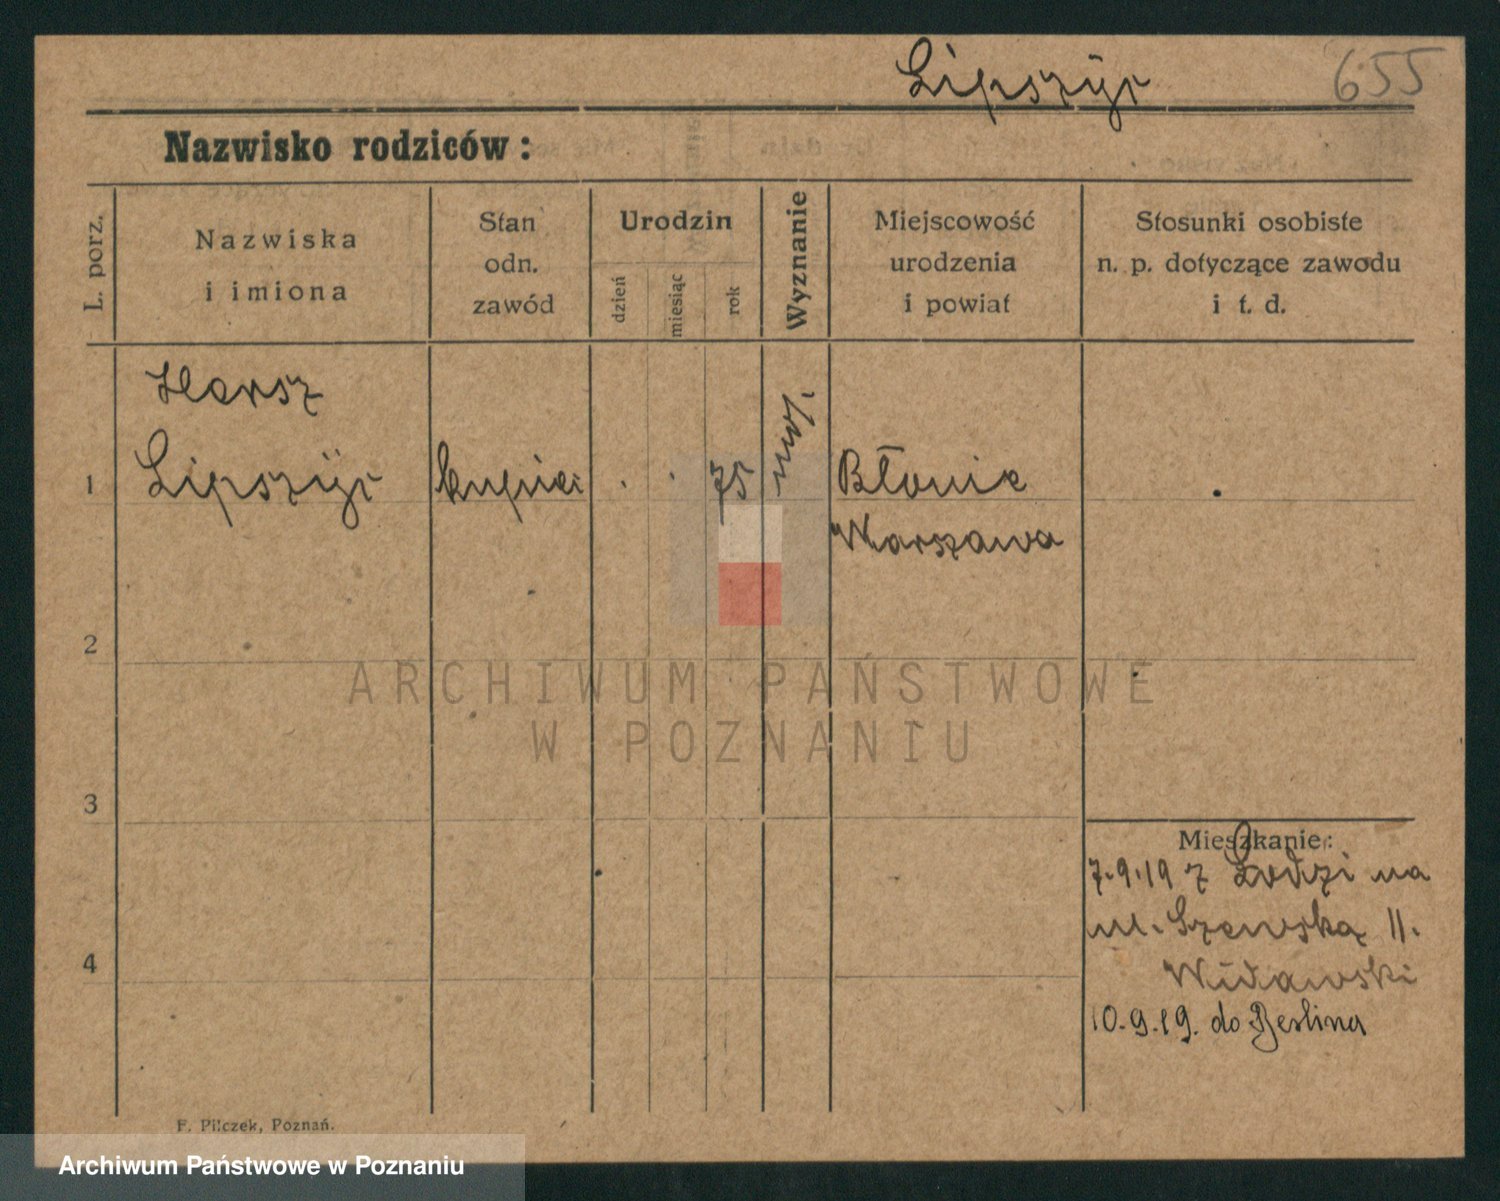 Lipszyc 655
Nazwisko rodziców:
L. porz.
Nazwiska
i imiona
Stan
odn.
zawód
Urodzin
dzień
miesiąc
rok
Wyznanie
Miejscowość
urodzenia
i powiat
Stosunki osobiste
n. p. dotyczące zawodu
i t. d.
1
Hersz
Lipszyc
kupiec
75
moj.
Błonie
Warszawa
2
3
4
Mieszkanie:
7.9.19 z Łodzi na
ul. Szewską 11.
Widawski
10.9.19. do Berlina
F. Pilczek, Poznań.
ARCHIWUM PAŃSTWOWE
W POZNANIU
Archiwum Państwowe w Poznaniu